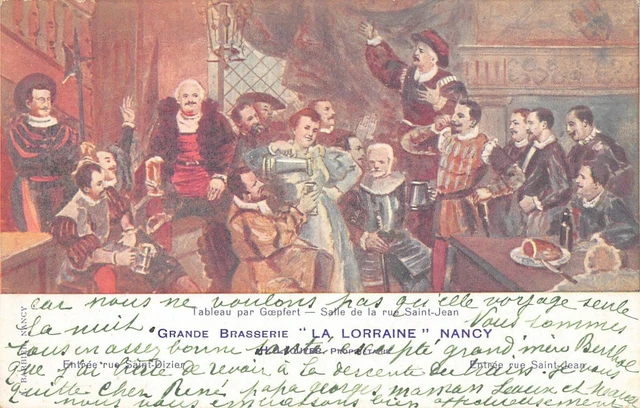 car nous ne voulons pas qu'elle voyage seule
Tableau par Gœpfert — Salle de la rue Saint-Jean
la nuit. Vous sommes
GRANDE BRASSERIE "LA LORRAINE" NANCY
tous en assez bonne santé excepté grand'mère Berthe
Entrée rue Saint-Dizier
Entrée rue Saint-Jean
que de revoir à la descente du train. Je vous
quitte Cher René, papa georges maman
nous vous embrassons bien affectueusement
NANCY